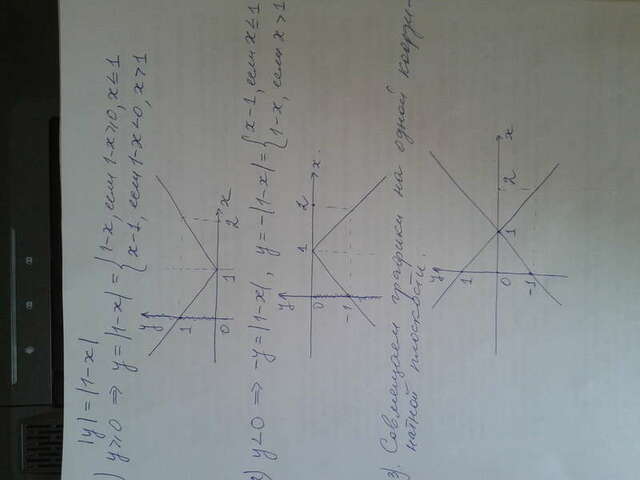 |y| = |1-x|
) y≥0 ⇒ y = |1-x| = { 1-x, если 1-x≥0, x≤1
x-1, если 1-x<0, x>1
y
1
0
1
2
x
2) y<0 ⇒ -y = |1-x|, y = -|1-x| = { x-1, если x≤1
1-x, если x>1
y
0
1
2
x
-1
3). Совмещаем графики на одной коорди-
натной плоскости.
y
1
0
1
2
x
-1